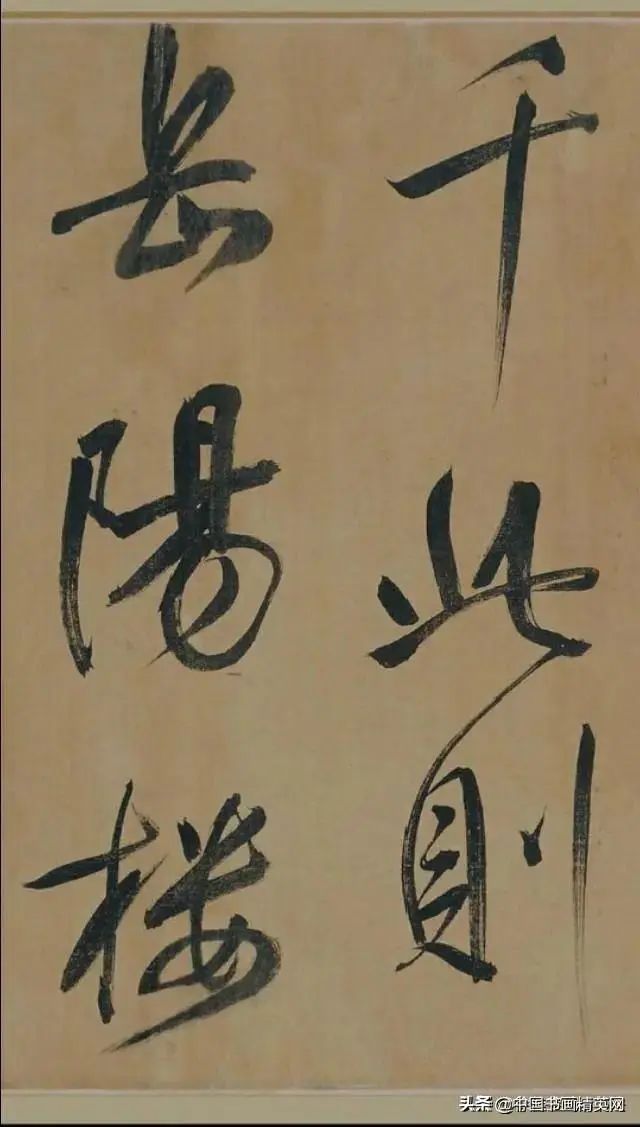 千此則
岳陽楼
头条 @中国书画精英网